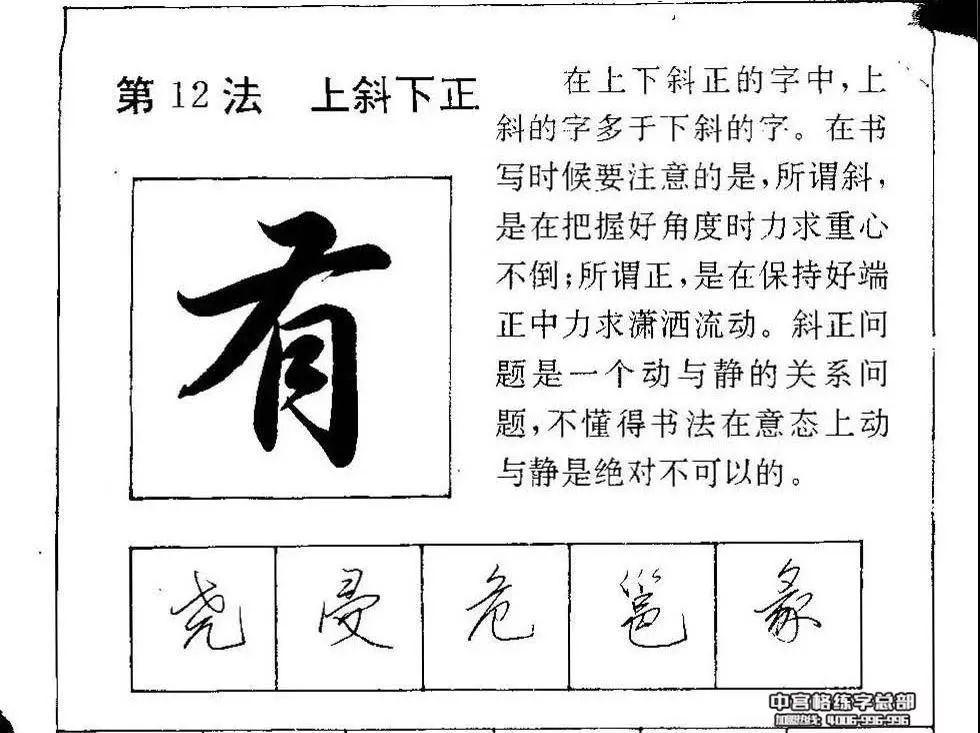 第12法 上斜下正
在上下斜正的字中,上
斜的字多于下斜的字。在书
写时候要注意的是,所谓斜,
是在把握好角度时力求重心
不倒;所谓正,是在保持好端
正中力求潇洒流动。斜正问
题是一个动与静的关系问
题,不懂得书法在意态上动
与静是绝对不可以的。
有
尧 曼 危 邕 彖
中宫格练字总部
加盟热线:4006-996-996